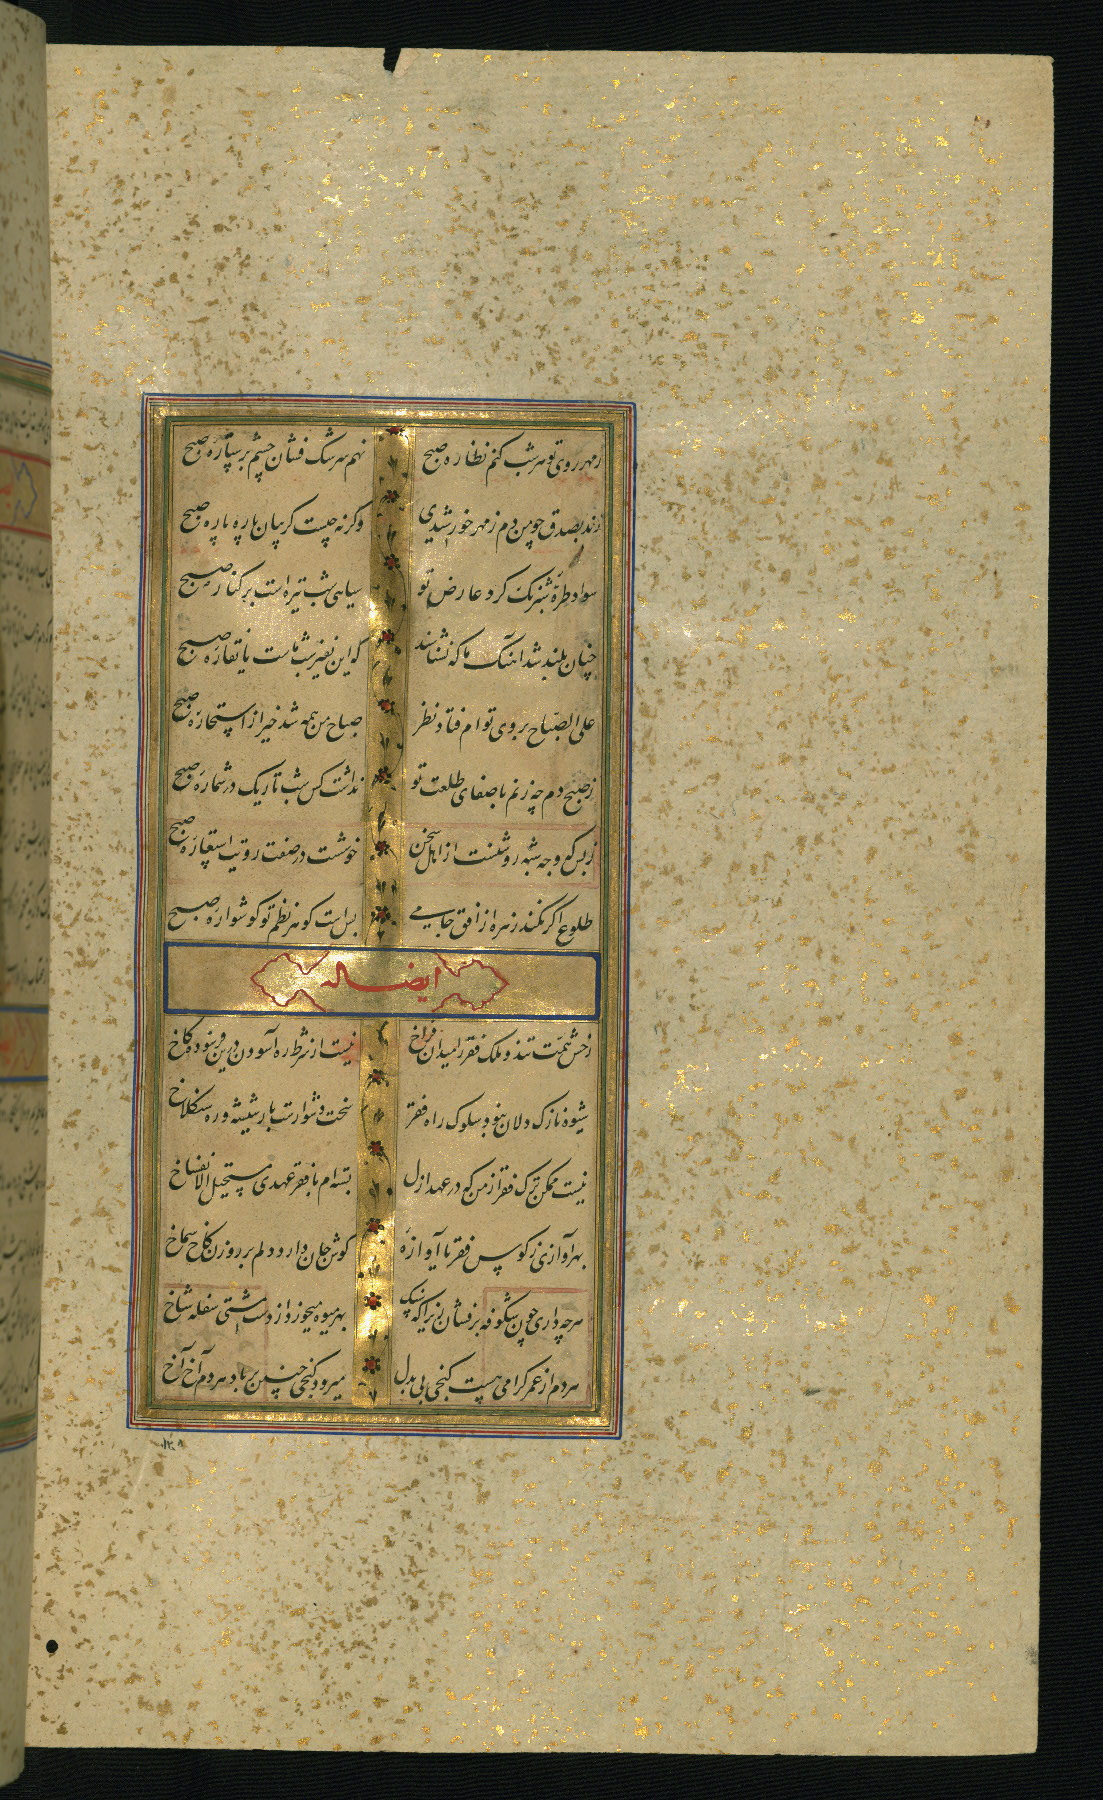 ز مهر روی تو هر شب کنم نظاره صبح
نهم سرشک فشان چشم بر ستاره صبح
زند بصدق چو من دم ز مهر خورشیدی
وگرنه چیست گریبان پاره پاره صبح
سواد طره شبرنگ گرد عارض تو
سیاهی شب تیره است بر کناره صبح
چنان بلند شد اهنگ ما که نشناسند
که این نفیر شب ماست یا نقاره صبح
علی الصباح بروی توام فتاد نظر
صباح من همه شد خیر از استخاره صبح
ز صبح دم چه زنم با صفای طلعت تو
نداشت کس شب تاریک در شماره صبح
ز بس که وجه شبه روشنست از اهل سخن
خوشست در صفت رویت استعاره صبح
طلوع اگر نکند زهره از افق جامی
بس است گوهر نظم تو گوشواره صبح
ایضا له
رخش همت تند و ملک فقر را میدان فراخ
نیست از شرط ره آسودن درین فرسوده کاخ
شیوه نازک دلان نبود سلوک راه فقر
سخت دشوارست بار شیشه و ره سنگلاخ
نیست ممکن ترک فقر از من که در عهد ازل
بسته ام با فقر عهدی مستحیل الانفساخ
بهر آوازی ز کوس فقر با آوازه
گوش جان دارد دلم بر روزن کاخ سماخ
هرچه داری چون شکوفه برفشان زیرا که سنگ
بهر میوه میخورد از دست مشتی سفله شاخ
هر دم از عمر گرامی هست گنجی بی بدل
میرود گنجی چنین بر باد هر دم آخ آخ